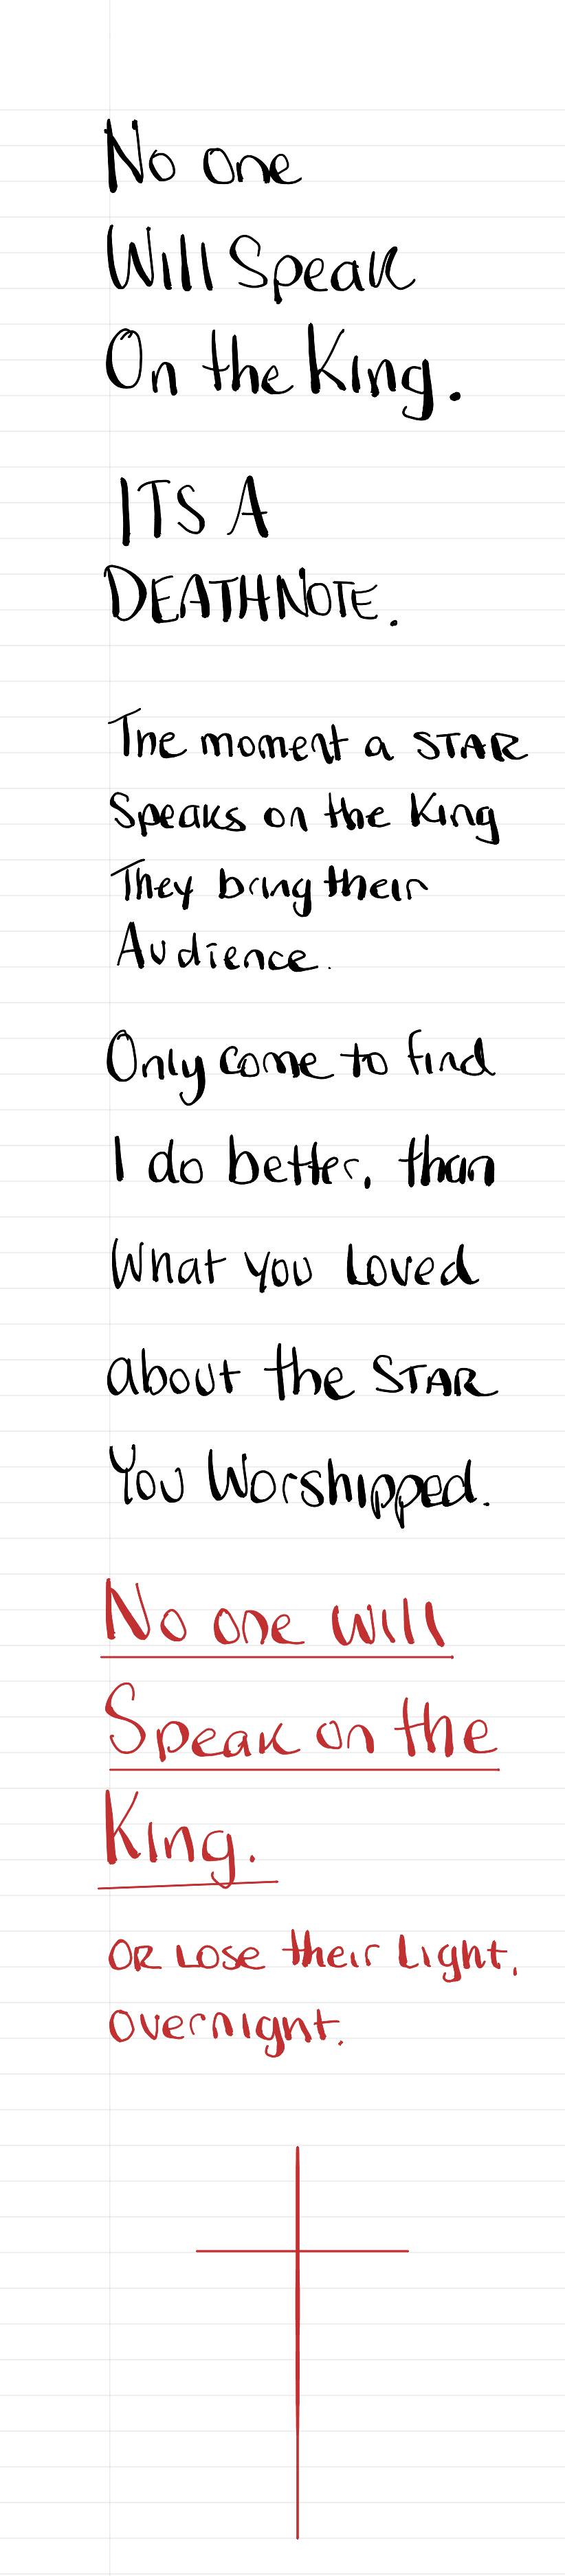 No one
Will Speak
On the King.
ITS A
DEATHNOTE.
The moment a STAR
Speaks on the King
They bring their
Audience.
Only come to find
I do better, than
What you Loved
about the STAR
You Worshipped.
No one will
Speak on the
King.
OR Lose their Light.
overnight.